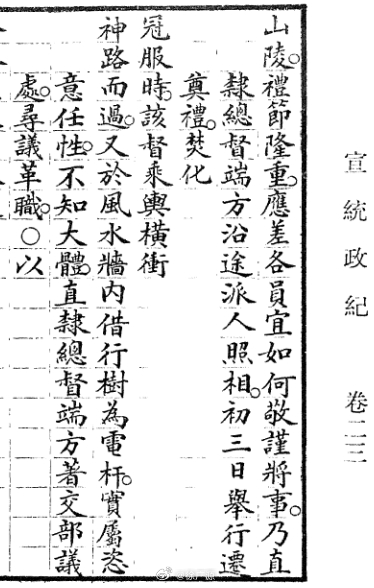 宣統政紀 卷二三
山陵。禮節隆重。應差各員宜如何敬謹將事。乃直
隸總督端方沿途派人照相。初三日舉行遷
奠禮。焚化
冠服時。該督乘輿橫衝
神路而過。又於風水牆內借行樹為電杆。實屬恣
意任性。不知大體。直隸總督端方著交部議
處。尋議革職。○以